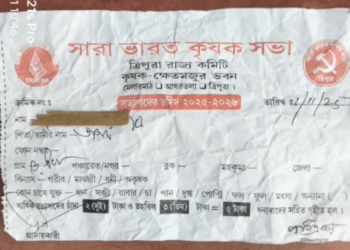 সারা ভারত কৃষক সভা
ত্রিপুরা রাজ্য কমিটি
কৃষক-ক্ষেতমজুর ভবন
মেলারমাঠ । আগরতলা । ত্রিপুরা ।
ত্রিপুরা
ক্রমিক নং :
সভ্যপদের রসিদ ২০২৫-২০২৬
তারিখ :
নাম
পিতা/স্বামীর নাম
ফোন নম্বর
গ্রাম পঞ্চায়েত/নগর — ব্লক — মহকুমা — জেলা —
বিন্যাস - গরীব / মাঝারী / ধনী / অকৃষক
কোন চাষে যুক্ত - ধান / সব্জী / রাবার / চা / পান / দুগ্ধ / পোল্ট্রি / ফল / ফুল / মৎস্য / অন্যান্য
বার্ষিক সভ্যপদের চাঁদা ২ (দুই) টাকা ও তহবিল ৩ (তিন) টাকা = ৫ টাকা ধন্যবাদের সহিত গৃহীত হল ।
আদায়কারী